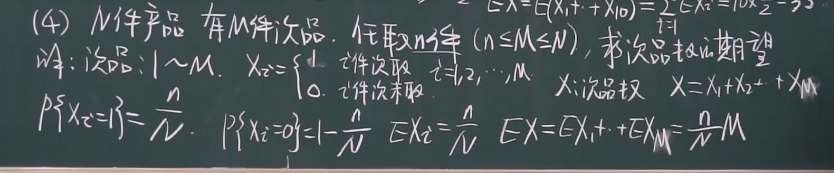 EX=E(X₁+··+X₁₀)=∑EXi=10×
i=1
(4) N件产品 有M件次品. 任取n件 (n≤M≤N), 求次品数的期望
解: 次品: 1~M. Xi={1 i件次取 i=1,2,···,M. X:次品数 X=X₁+X₂+··+X_M
0. i件次未取.
P{Xi=1}=n/N. P{Xi=0}=1-n/N EXi=n/N EX=EX₁+··+EX_M=n/N M